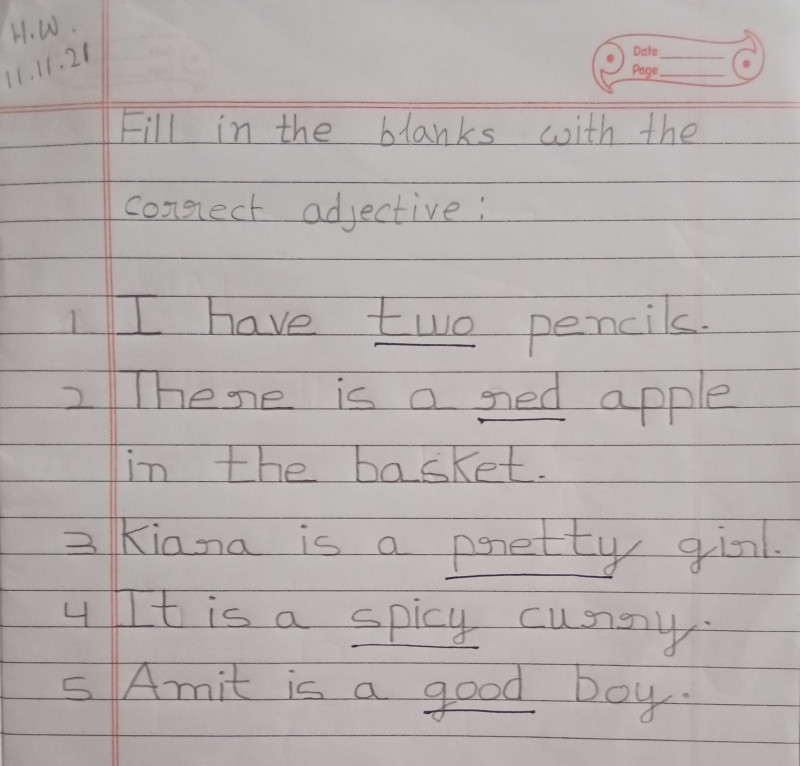 H.W.
11.11.21
Date
Page
Fill in the blanks with the
correct adjective:
1 I have two pencils.
2 There is a red apple
in the basket.
3 Kiara is a pretty girl.
4 It is a spicy curry.
5 Amit is a good boy.